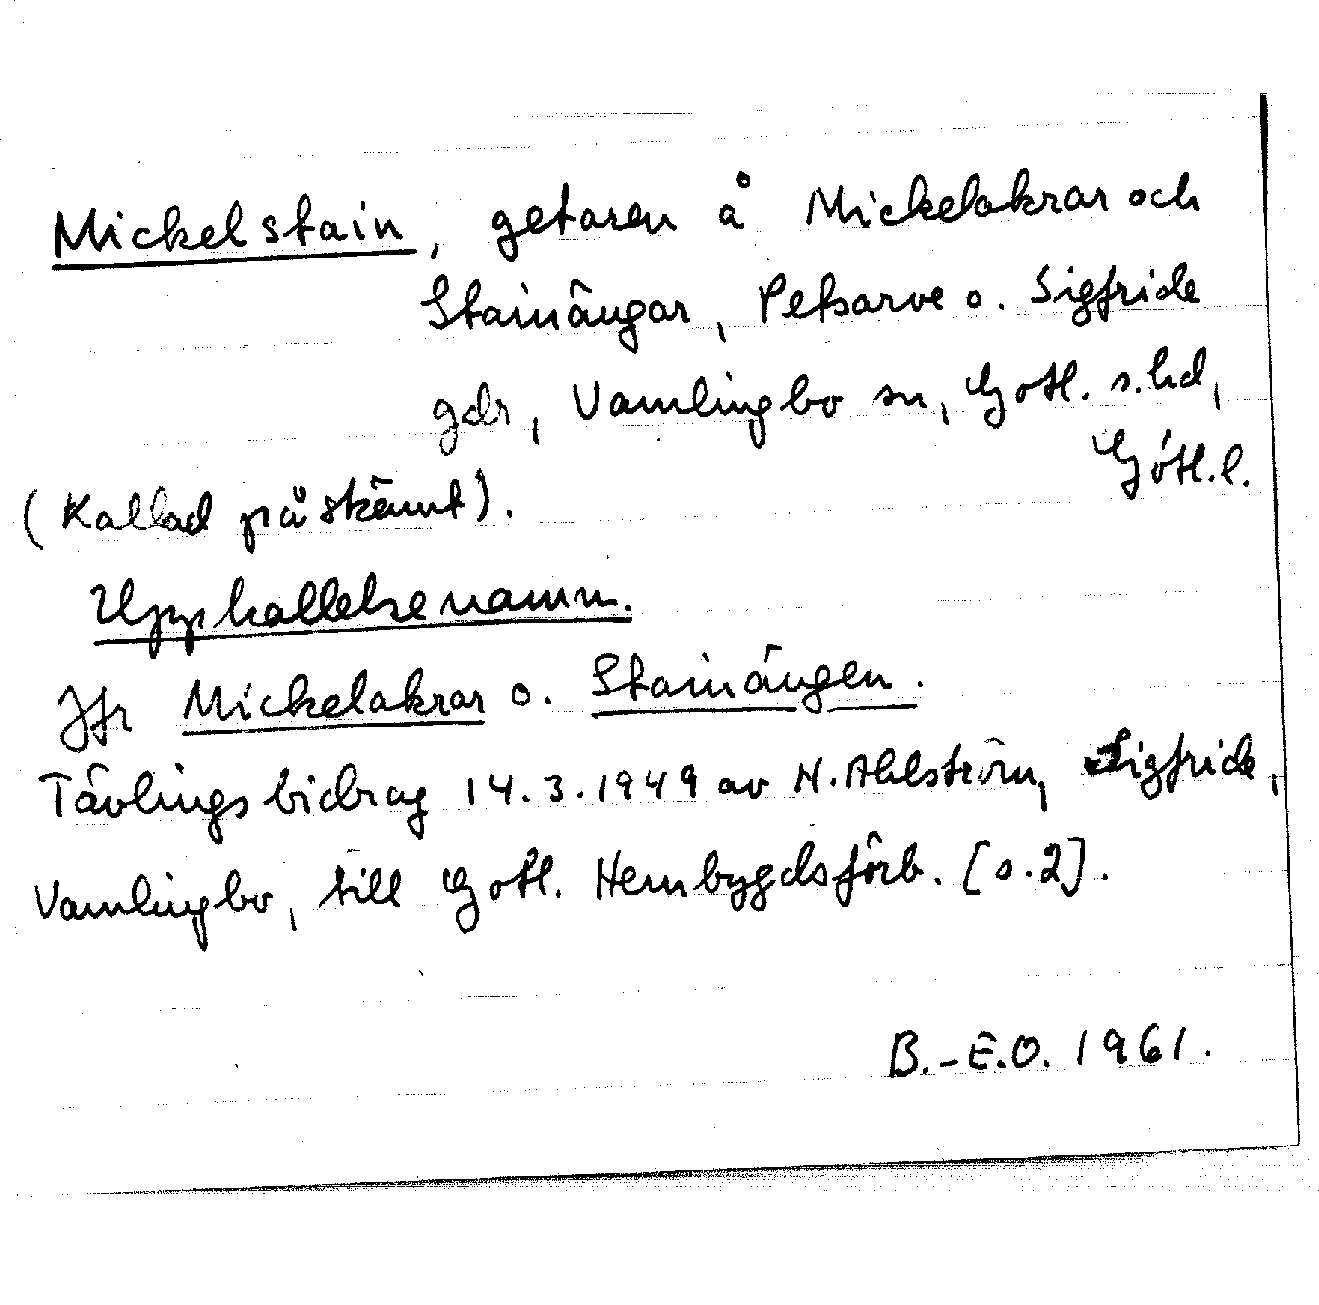 Mickelstain, getaren å Mickelakrar och
Stainängar, Petsarve o. Sigfride
gdr, Vamlingbo sn, Gotl. s. hd,
Gotl. l.
(Kallad på skämt).
Uppkallelsenamn.
Jfr Mickelakrar o. Stainängen.
Tävlingsbidrag 14.3.1949 av N. Ahlström, Sigfride,
Vamlingbo, till Gotl. Hembygdsförb. [s.2].
B.-E.O. 1961.